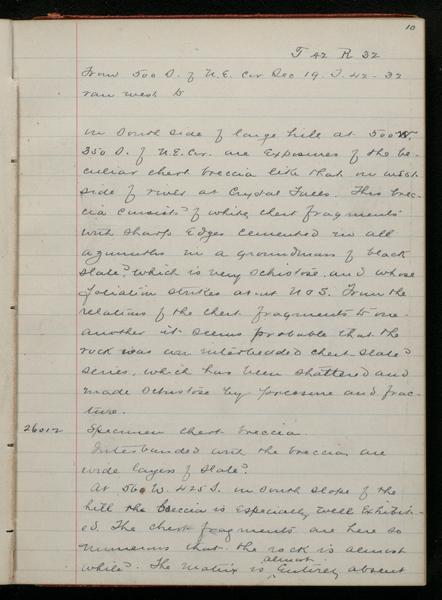 10
T 42 R 32
From 500 S. of N.E. Cor Sec 19. T. 42-32
ran west to
on South side of large hill at 500 W.
350 S. of N.E. Cor. are Exposures of the pe-
culiar chert breccia like that on west
side of river at Crystal Falls. This brec-
cia consists of white chert fragments
with sharp Edges cemented in all
azimuths in a groundmass of black
slate? which is very schistose and whose
foliation strikes about N & S. From the
relations of the chert fragments to one
another it seems probable that the
rock was an interbedded chert slate?
series, which has been shattered and
made schistose by pressure and frac-
ture.
26012 Specimen chert breccia
Interbanded with the breccia are
wide layers of slate?
At 560 W. 425 S. on South slope of the
hill the breccia is Especially well Exhibit-
ed. The chert fragments are here so
numerous that the rock is almost
white. The matrix is almost Entirely absent